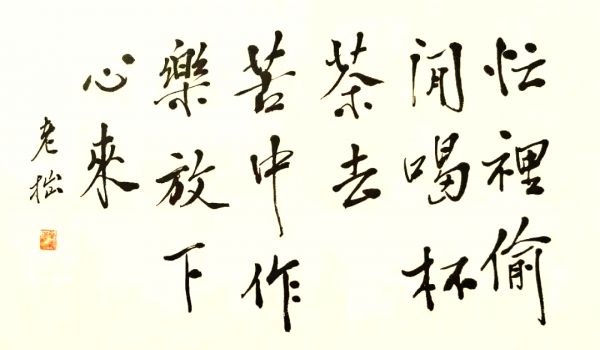 忙裡偷
閒喝杯
茶去
苦中作
樂放下
心來
老拙